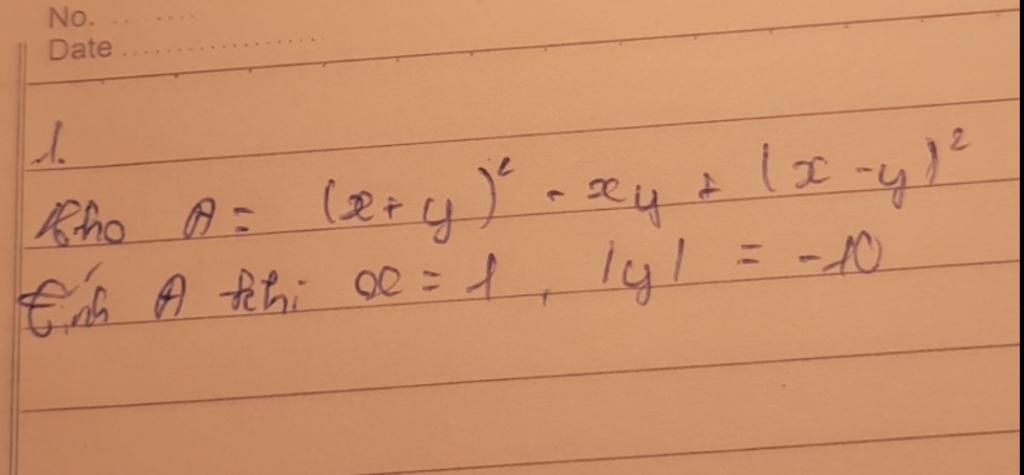 No. ..........
Date ....................
1.
Cho A = (x + y)² - xy + (x - y)²
Tính A khi x = 1, |y| = -10